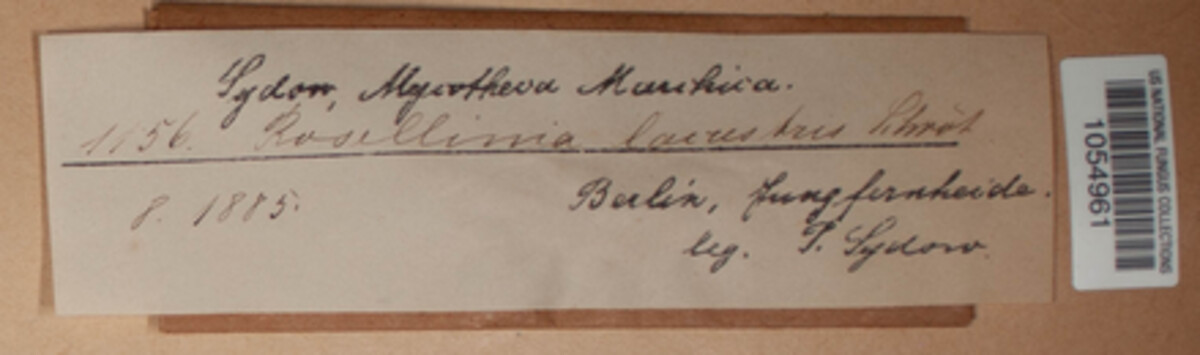 Sydow, Mycotheca Marchica.
1156. Rosellinia lacustris Schröt
8. 1885.
Berlin, Jungfernheide.
leg. P. Sydow.
US NATIONAL FUNGUS COLLECTIONS
1054961